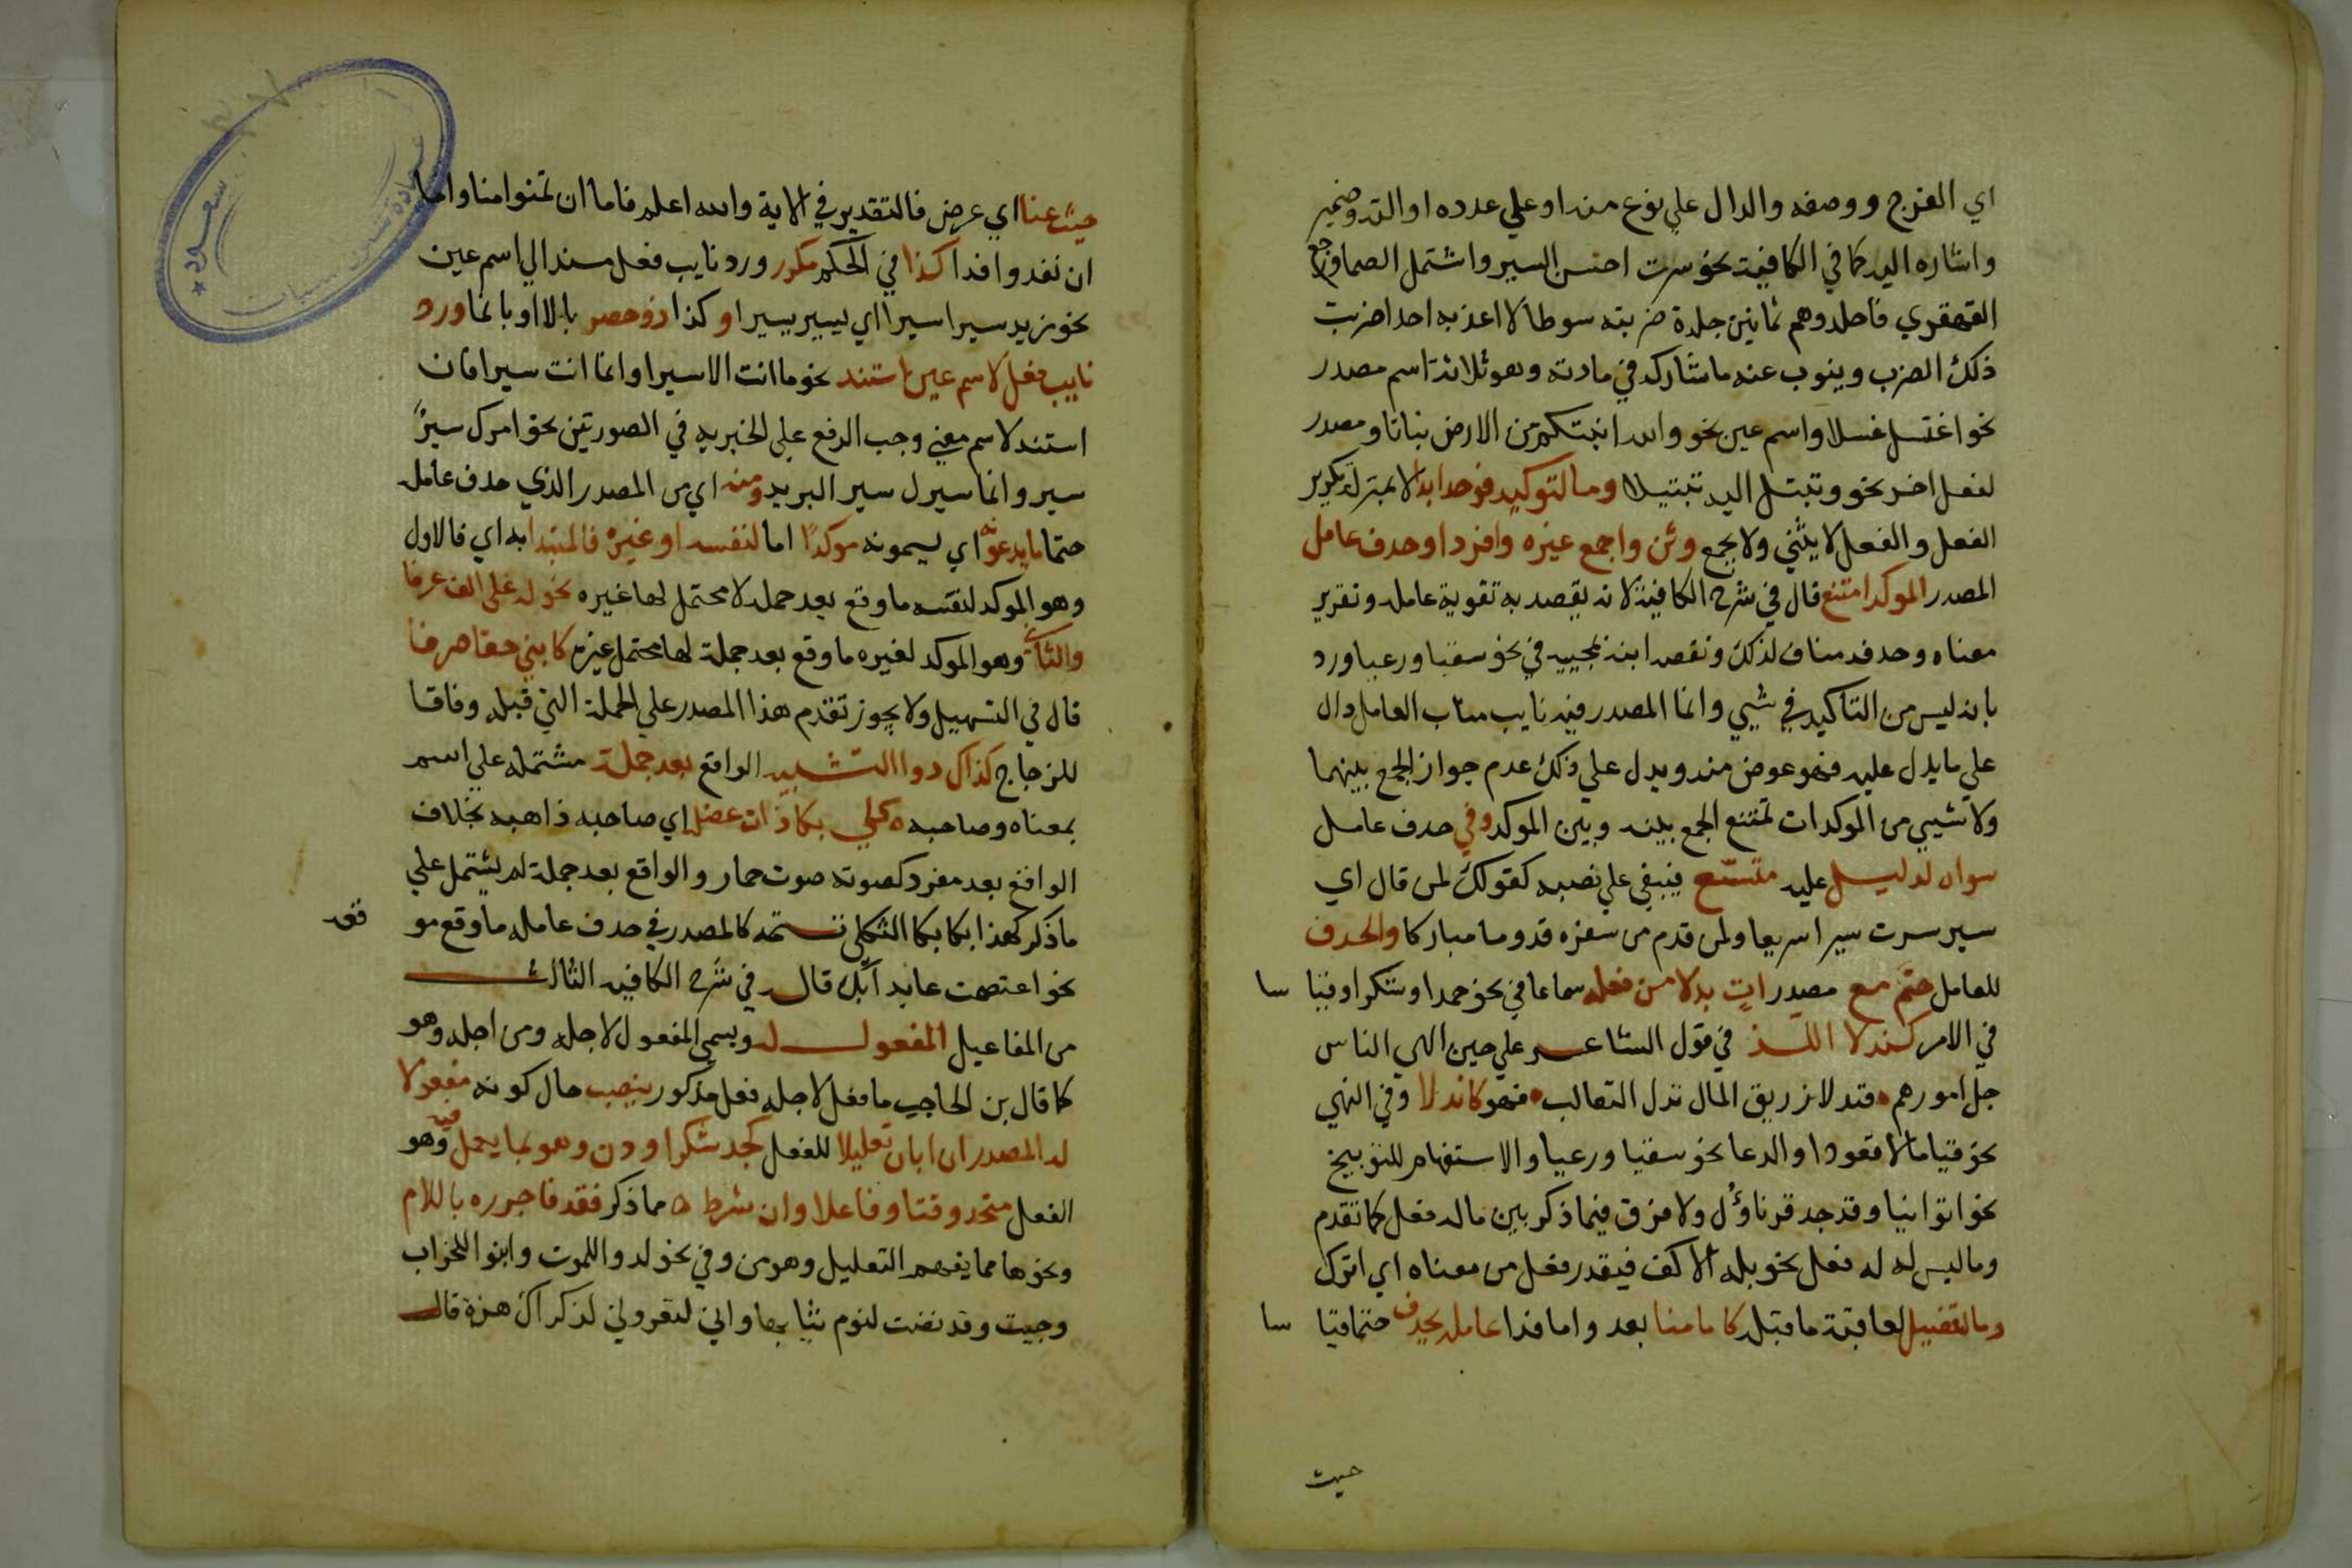 اي الفرح ووصفه والدال علي نوع منه او علي عدده او الته وضمير
واشاره اليه كما في الكافية نحو سرت احسن السير واشتمل الصما ورجع
القهقري فاجلدوهم ثمانين جلدة ضربته سوطا لا اعذبه احدا ضربت
ذلك الضرب وينوب عنه ما شاركه في مادته وهو ثلاثة اسم مصدر
نحو اغتسل غسلا واسم عين نحو والله انبتكم من الارض نباتا ومصدر
لفعل اخر نحو وتبتل اليه تبتيلا وما لتوكيد فوحد ابدا لانه بمنزلة تكرير
الفعل والفعل لا يثني ولا يجمع وثن واجمع غيره وافردا وحذف عامل
المصدر الموكد امتنع قال في شرح الكافية لانه يقصد به تقوية عامله وتقرير
معناه وحذفه مناف لذلك ونقضه ابنه بمجييه في نحو سقيا ورعيا ورد
بانه ليس من التاكيد في شيي وانما المصدر فيه نايب مناب العامل دال
علي ما يدل عليه فهو عوض منه ويدل علي ذلك عدم جواز الجمع بينهما
ولا شيي من الموكدات تمتنع الجمع بينه وبين الموكد وفي حذف عامل
سواه لدليل عليه متسع فيبقي علي نصبه كقولك لمن قال اي
سير سرت سيرا سريعا ولمن قدم من سفره قدوما مباركا والحذف
للعامل حتم مع مصدر ات بدلا من فعله سماعا في نحو حمدا وشكرا وقيا سا
في الامر كندلا اللذ في قول الشاعر علي حين الهي الناس
جل امورهم فندلا زريق المال ندل الثعالب فهو كاندلا وفي النهي
نحو قياما لا قعودا والدعا نحو سقيا ورعيا والاستفهام للتوبيخ
نحو اتوانيا وقد جد قرناؤك ولا فرق فيما ذكر بين ماله فعل كما تقدم
وما ليس له له فعل نحو بله الاكف فيقدر فعل من معناه اي اترك
وما لتفصيل لعاقبة ما قبله كاما منا بعد واما فدا عامله يحذف حتما قيا سا
حيث
حيث عنا اي عرض فالتقدير في الاية والله اعلم فاما ان تمنوا منا واما
ان تفدوا فدا كذا في الحكم مكرر ورد نايب فعل مسند الي اسم عين
نحو زيد سيرا سيرا اي يسير يسيرا و كذا ذو حصر بالا او بانما ورد
نايب فعل لاسم عين استند نحو ما انت الا سيرا وانما انت سيرا فان
استند لاسم معني وجب الرفع علي الخبريه في الصورتين نحو امرك سيرٌ
سير وانما سيرك سير البريد ومنه اي من المصدر الذي حذف عامله
حتما ما يدعونه اي يسمونه موكدًا اما لنفسه او غيره فالمبتدا به اي فالاول
وهو الموكد لنفسه ما وقع بعد جمله لا محتمل لها غيره نحو له علي الف عرفا
والثاني وهو الموكد لغيره ما وقع بعد جملة لها محتمل غيره كابني حقا صرفا
قال في التسهيل ولا يجوز تقدم هذا المصدر علي الجملة التي قبله وفاقا
للزجاج كذاك ذوا التشبيه الواقع بعد جملة مشتمله علي اسم
بمعناه وصاحبه كلي بكا ذات عضل اي صاحبه ذاهبه بخلاف
الواقع بعد مفرد كصوته صوت حمار والواقع بعد جملة لم يشتمل علي
ما ذكر كهذا بكا بكا الثكلي تتمة كالمصدر في حذف عامله ما وقع مو قعه
نحو اعتصمت عايد ابك قال في شرح الكافيه الثالث
من المفاعيل المفعول له ويسمي المفعول لاجله ومن اجله وهو
كما قال بن الحاجب ما فعل لاجله فعل مذكور ينصب حال كونه مفعولا
له المصدر ان ابان تعليلا للفعل كجد شكرا ودن وهو بما يعمل فيه وهو
الفعل متحد وقتا وفاعلا وان شرط مما ذكر فقد فاجرره باللام
ونحوها مما يفهم التعليل وهو من وفي نحو لدوا للموت وابنوا للخراب
وجيت وقد نضت لنوم ثيابها واني لتعروني لذكراك هزة قال